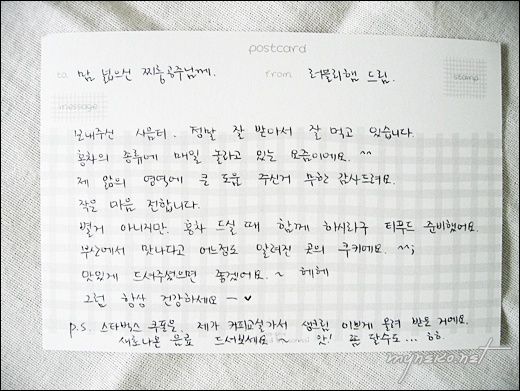 postcard
to 맘 넓으신 찌롱공주님께. from 러블리햄 드림. stamp
message
보내주신 시음티. 정말 잘 받아서 잘 먹고 있습니다.
홍차의 종류에 매일 놀라고 있는 요즘이에요. ^^
제 앎의 영역에 큰 도움 주신거 무한 감사드려요.
작은 마음 전합니다.
별거 아니지만. 홍차 드실 때 함께 하시라구 티푸드 준비했어요.
부산에서 맛나다고 어느정도 알려진 곳의 쿠키에요. ^^;
맛있게 드셔주셨으면 좋겠어요. ~ 헤헤
그럼 항상 건강하세요 ー♥
p.s. 스타벅스 쿠폰은. 제가 커피교실가서 생크림 이쁘게 올려 받은 거에요.
새로나온 음료 드셔보세요 ~ 앗! 쫌 달수도... ㅎㅎ
myneko.net